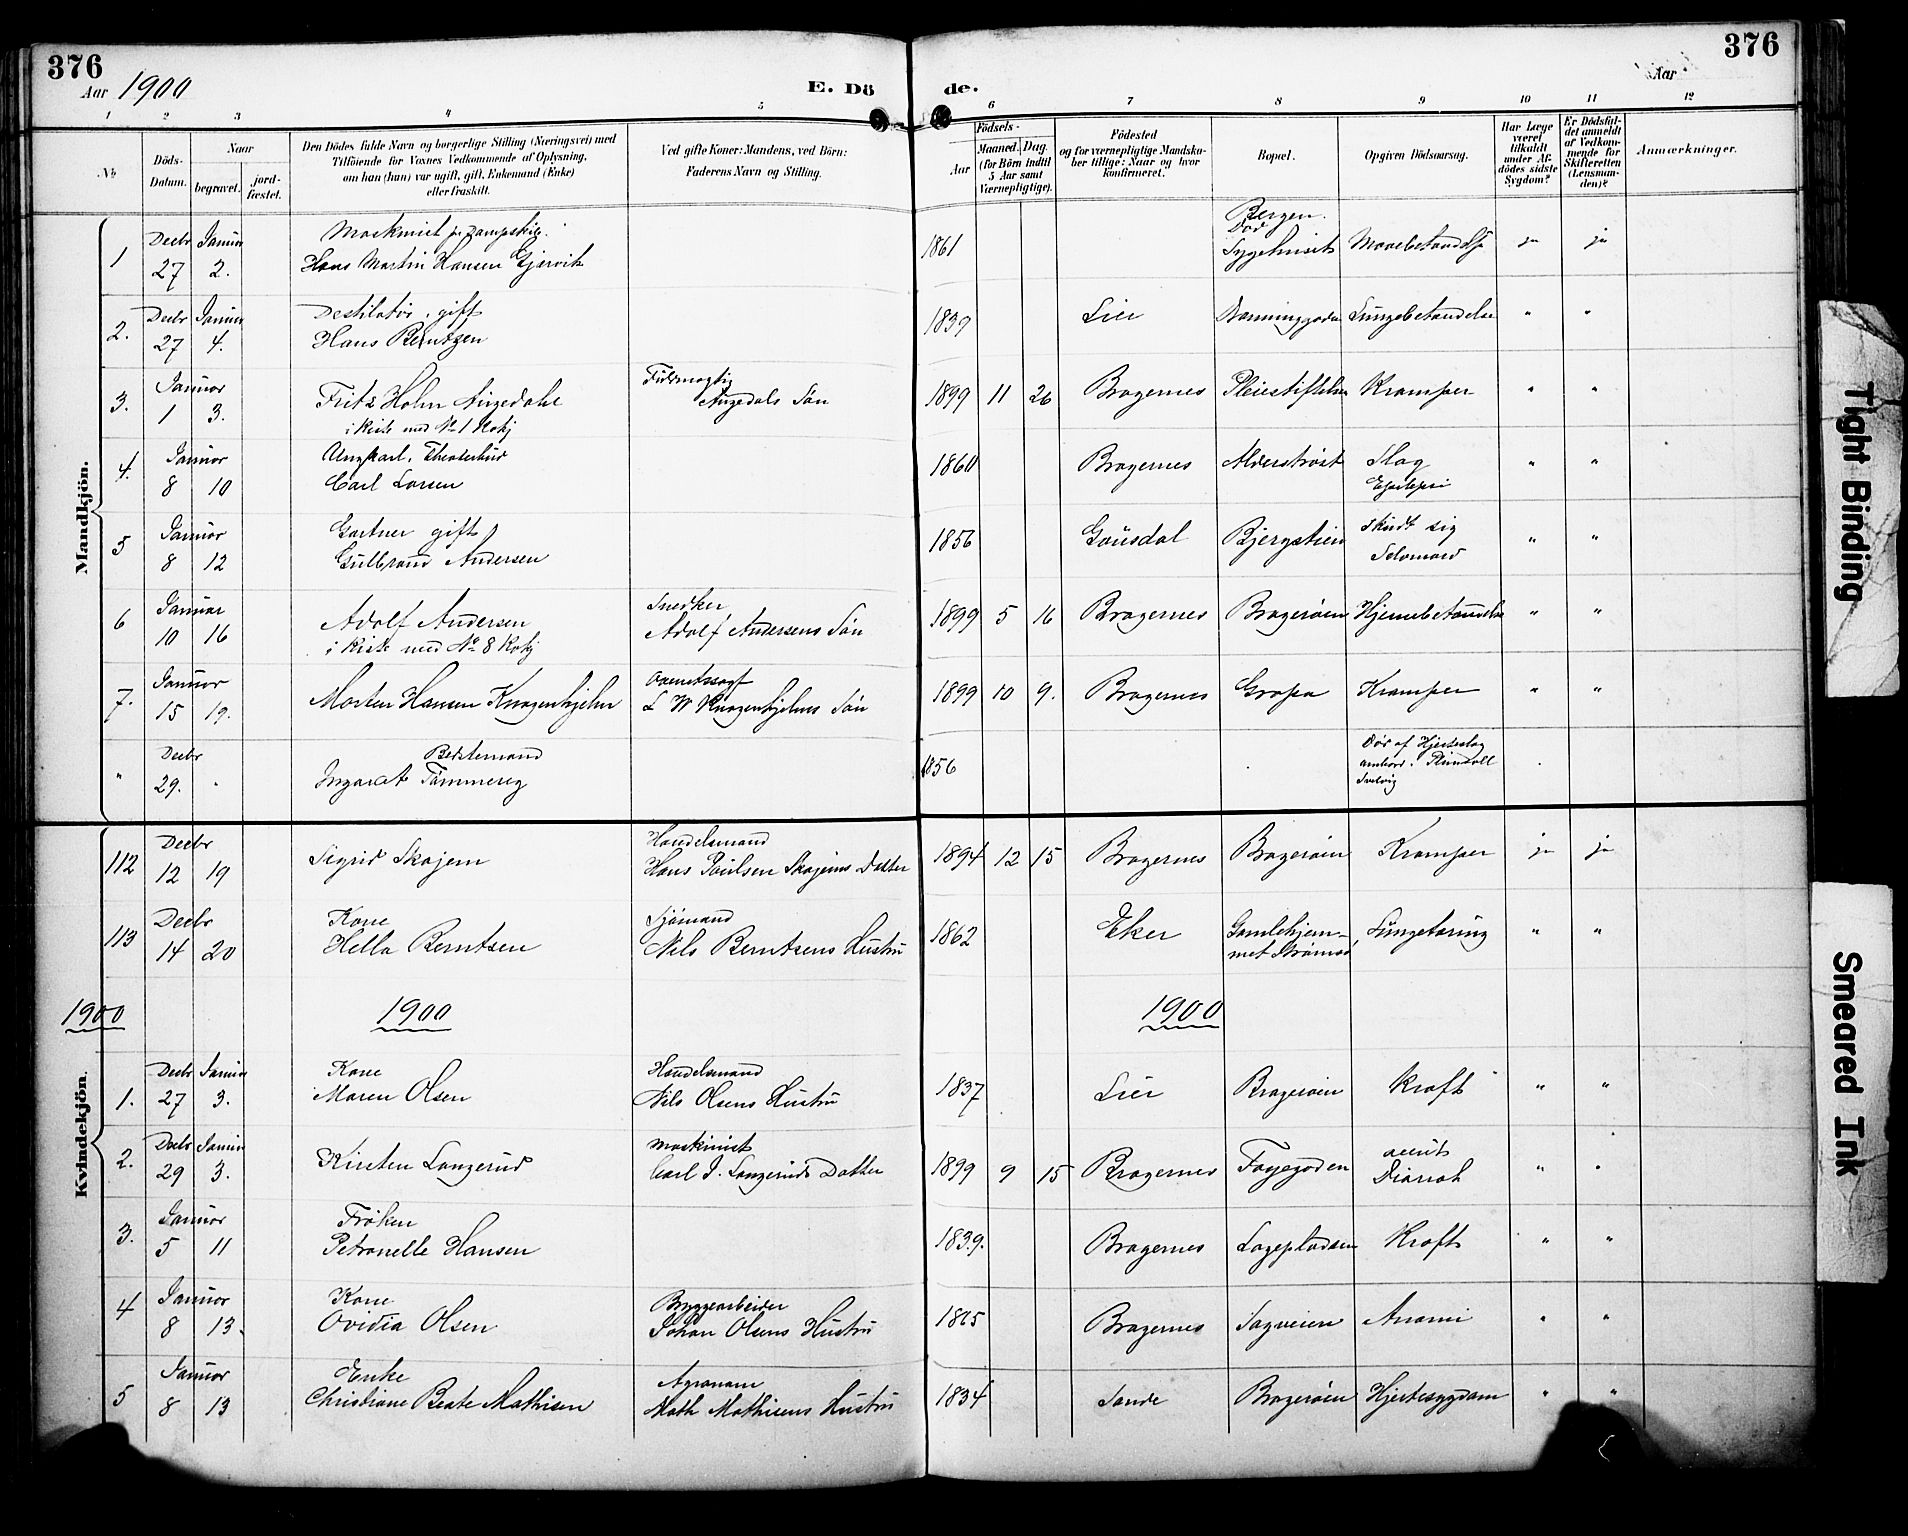 376
Aar 1900
E. Dö
de.
376
Aar
1 2 3 4 5 6 7 8 9 10 11 12
No
Döds-
Datum.
Naar
begravet.
jord-
fæstet.
Den Dödes fulde Navn og borgerlige Stilling (Næringsvei) med
Tilföiende for Voxnes Vedkommende af Oplysning,
om han (hun) var ugift, gift, Enkemand (Enke)
eller fraskilt.
Ved gifte Koner: Mandens, ved Börn:
Faderens Navn og Stilling.
Födsels-
Aar
Maaned. Dag.
(for Börn indtil
5 Aar samt
Værnepligtige).
Födested
og for værnepligtige Mandska-
ber tillige: Naar og hvor
konfirmeret.
Bopæl.
Opgiven Dödsaarsag.
Har Læge
været
tilkaldt
under Af-
dödes sidste
Sygdom?
Er Dödsfal-
det anmeldt
af Vedkom-
mende for
Skifteretten
(Lensman-
den)?
Anmærkninger.
Mandkjön.
1 Decbr 27 Januar 2. Maskinist
Hans Martin Hansen Gjervik 1861 Bergen. Död Sygehuset ja ja
2. Decbr 27 Januar 4. Destilatör, gift
Hans Berntzen 1839 Lier Lungebetændelse " "
3. Januar 1 3. Fritz Holm Ringedahl
i Kiste med No 1 Kvkj
Fuldmægtig
Ringedals Sön 1899 11 26 Bragernes Pleiestiftelsen Kramper " "
4. Januar 8 10 Ungkarl.
Carl Larsen 1860 Bragernes Alderstrøst Slag
Epilepsi " "
5 Januar 8 12 Gartner gift
Gulbrand Andersen 1856 Gausdal Bjergstien Skudt sig
Selvmord " "
6 Januar 10 16 Adolf Andersen
i Kiste med No 8 Kvkj
Snedker
Adolf Andersens Sön 1899 5 16 Bragernes Bragerøen Hjernebetændelse " "
7. Januar 15 19. Morten Hansen Knagenhjelm
L W Knagenhjelms Sön 1899 10 9. Bragernes Kramper " "
" Decbr 29. Bestemand
1856 Död af Hjerteslag
ombord
Svelvig
112 Decbr 12 19 Sigrid Skajem
Handelsmand
Hans Paulsen Skajems Datter 1894 12 15 Bragernes Bragerøen Kramper ja ja
113 Decbr 14 20 Kone
Hella Berntsen
Sjömand
Nils Berntsens Hustru 1862 Eker Gamlehjem-
met Strømsø Lungetæring " "
1900 1900 1900
Kvindekjön.
1. Decbr 27 Januar 3. Kone
Maren Olsen
Handelsmand
Nils Olsens Hustru 1837 Lier Bragerøen Kræft " "
2. Decbr 29 Januar 3. Kirsten Langerud
Maskinist
Carl J. Langeruds Datter 1899 9 15 Bragernes acut
Diarroh " "
3. Januar 5 11 Frøken
Petronelle Hansen 1839. Bragernes Lagepladsen Kræft " "
4 Januar 8 13. Kone
Ovidia Olsen
Byggearbeider
Johan Olsens Hustru 1865 Bragernes Sagveien Anæmi " "
5 Januar 8 13 Enke
Christiane Beate Mathisen
Agronom
Math Mathisens Hustru 1834 Sande Bragerøen Hjertesygdom " "
Tight Binding
Smeared Ink